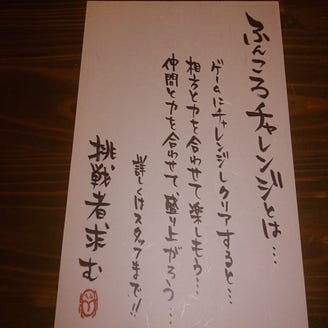 ふんころチャレンジとは…
ゲームにチャレンジしクリアすると…
相方と力を合わせて楽しもう…
仲間と力を合わせて、盛り上がろう…
詳しくはスタッフまで!!
挑戦者求む